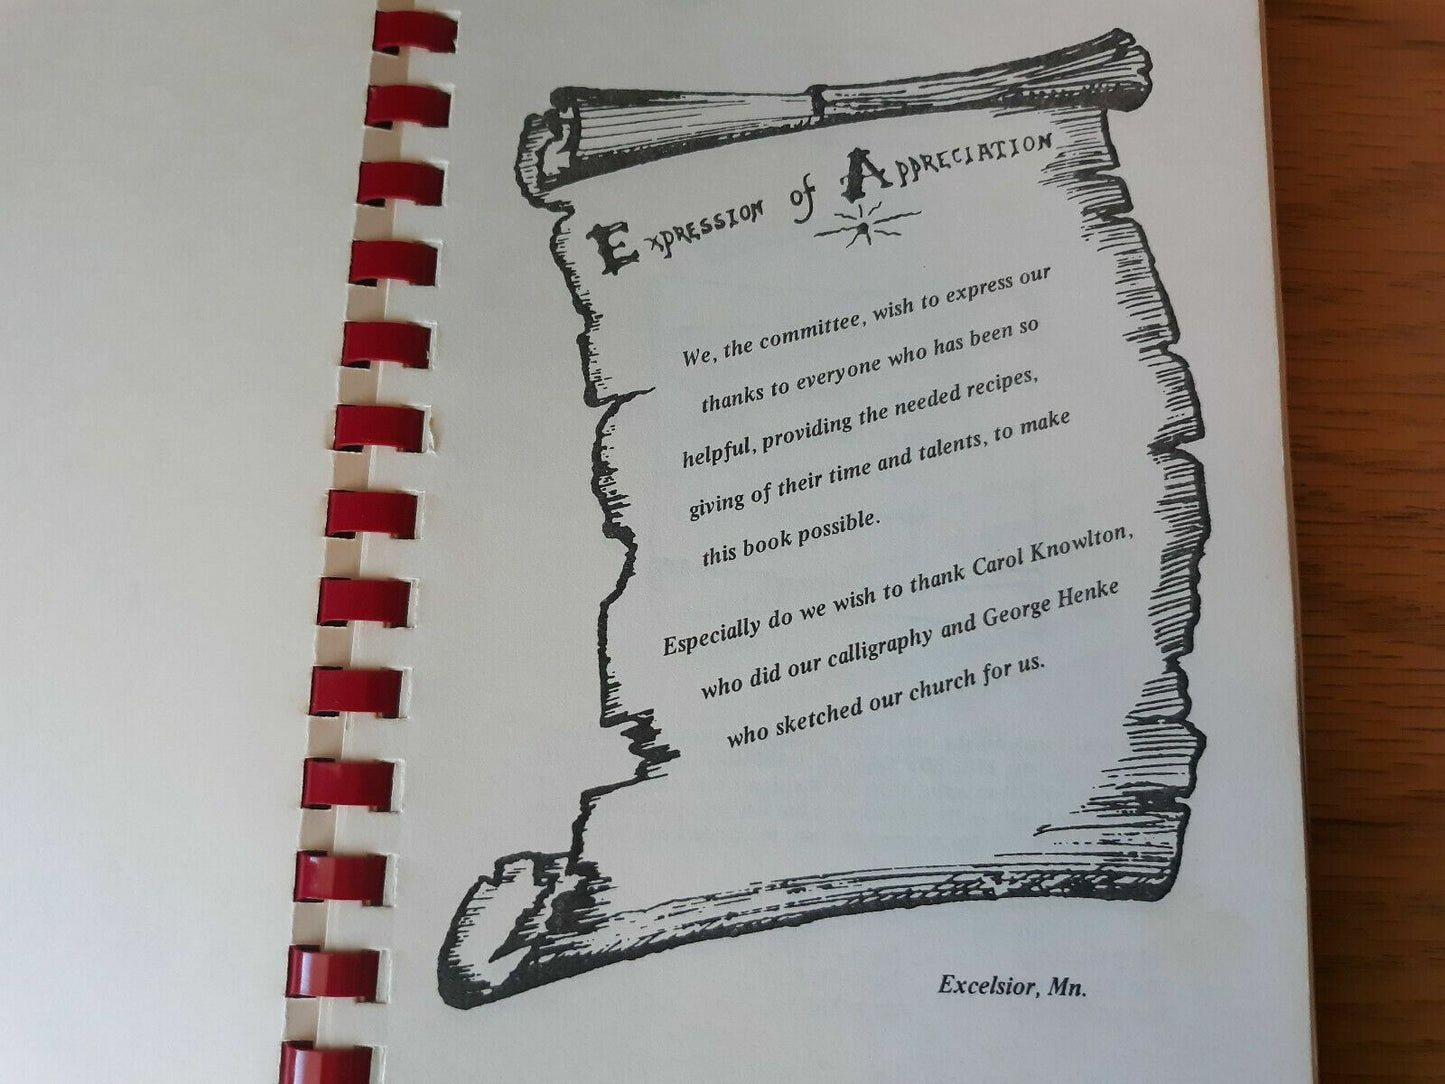 Expression of Appreciation
We, the committee, wish to express our
thanks to everyone who has been so
helpful, providing the needed recipes,
giving of their time and talents, to make
this book possible.
Especially do we wish to thank Carol Knowlton,
who did our calligraphy and George Henke
who sketched our church for us.
Excelsior, Mn.